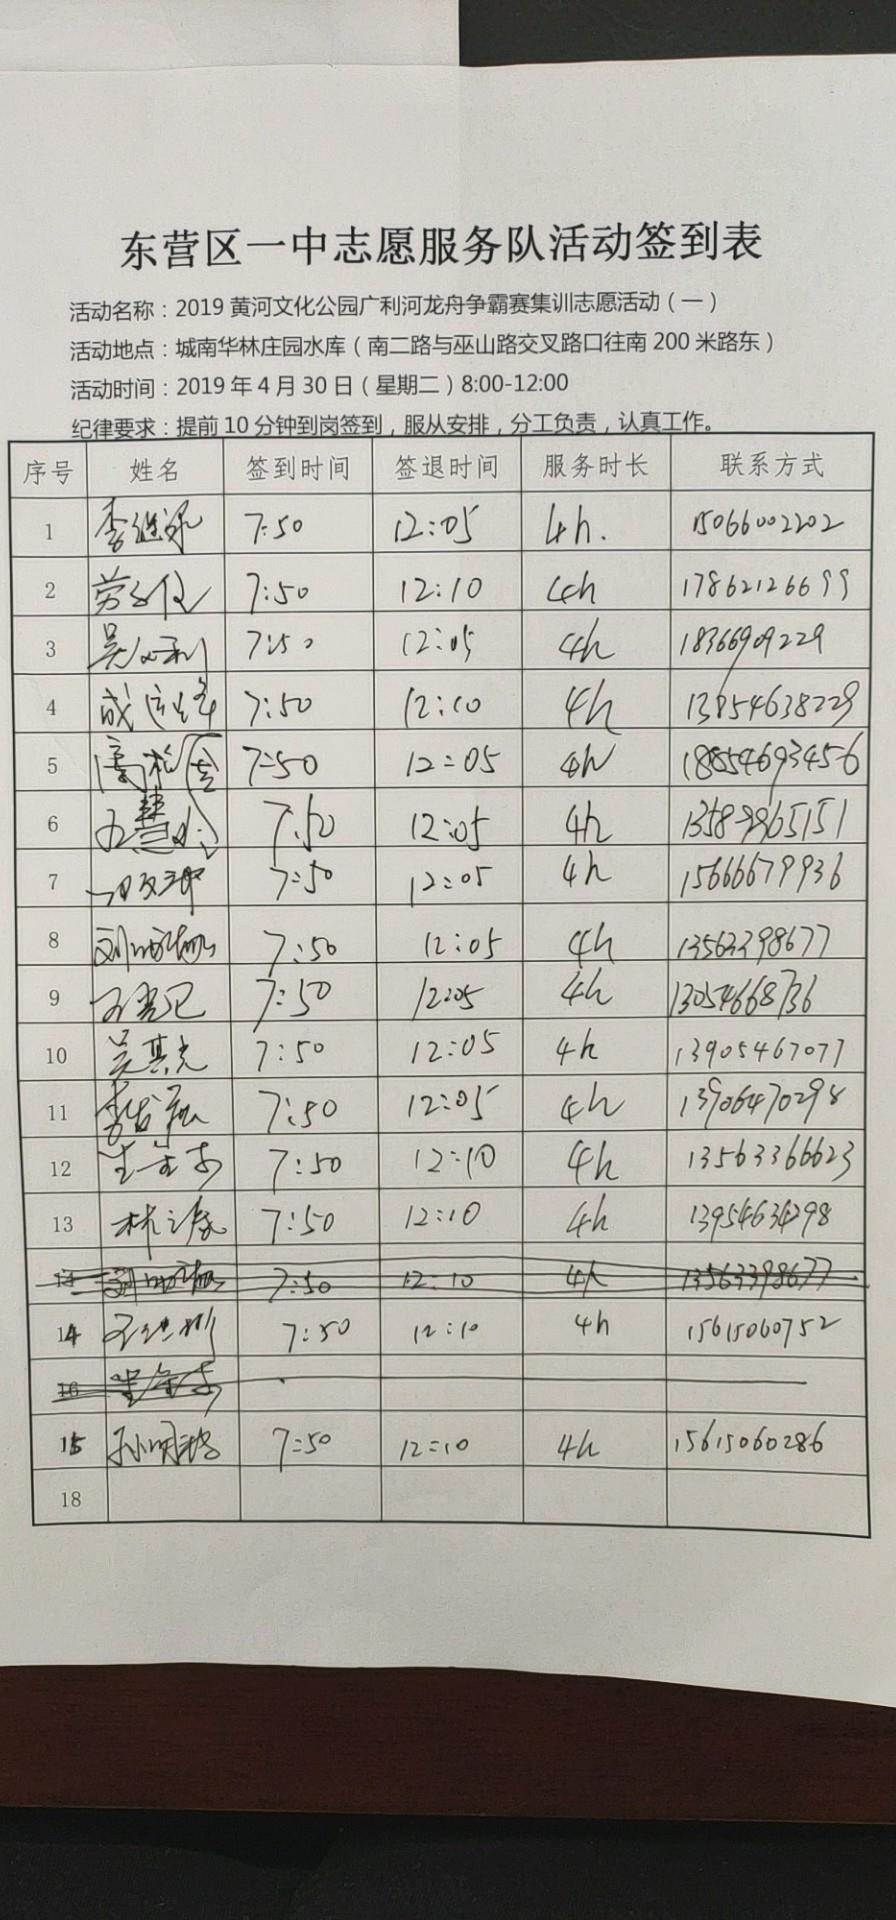 东营区一中志愿服务队活动签到表
活动名称：2019 黄河文化公园广利河龙舟争霸赛集训志愿活动（一）
活动地点：城南华林庄园水库（南二路与巫山路交叉路口往南 200 米路东）
活动时间：2019 年 4 月 30 日（星期二）8:00-12:00
纪律要求：提前 10 分钟到岗签到，服从安排，分工负责，认真工作。
序号 姓名 签到时间 签退时间 服务时长 联系方式
1 7:50 12:05 4h. 15066002202
2 7:50 12:10 4h 17862126699
3 7:50 12:05 4h 18366909229
4 7:50 12:10 4h 13854638229
5 7:50 12:05 4h 18854693456
6 7:50 12:05 4h 13589965151
7 7:50 12:05 4h 15666679936
8 7:50 12:05 4h 13563398677
9 7:50 12:05 4h 13054668736
10 吴其光 7:50 12:05 4h 13905467077
11 7:50 12:05 4h 13906470298
12 7:50 12:10 4h 13563366623
13 7:50 12:10 4h 13954634298
14 7:50 12:10 4h 13563398677
14 7:50 12:10 4h 15615060752
16
15 7:50 12:10 4h 15615060286
18